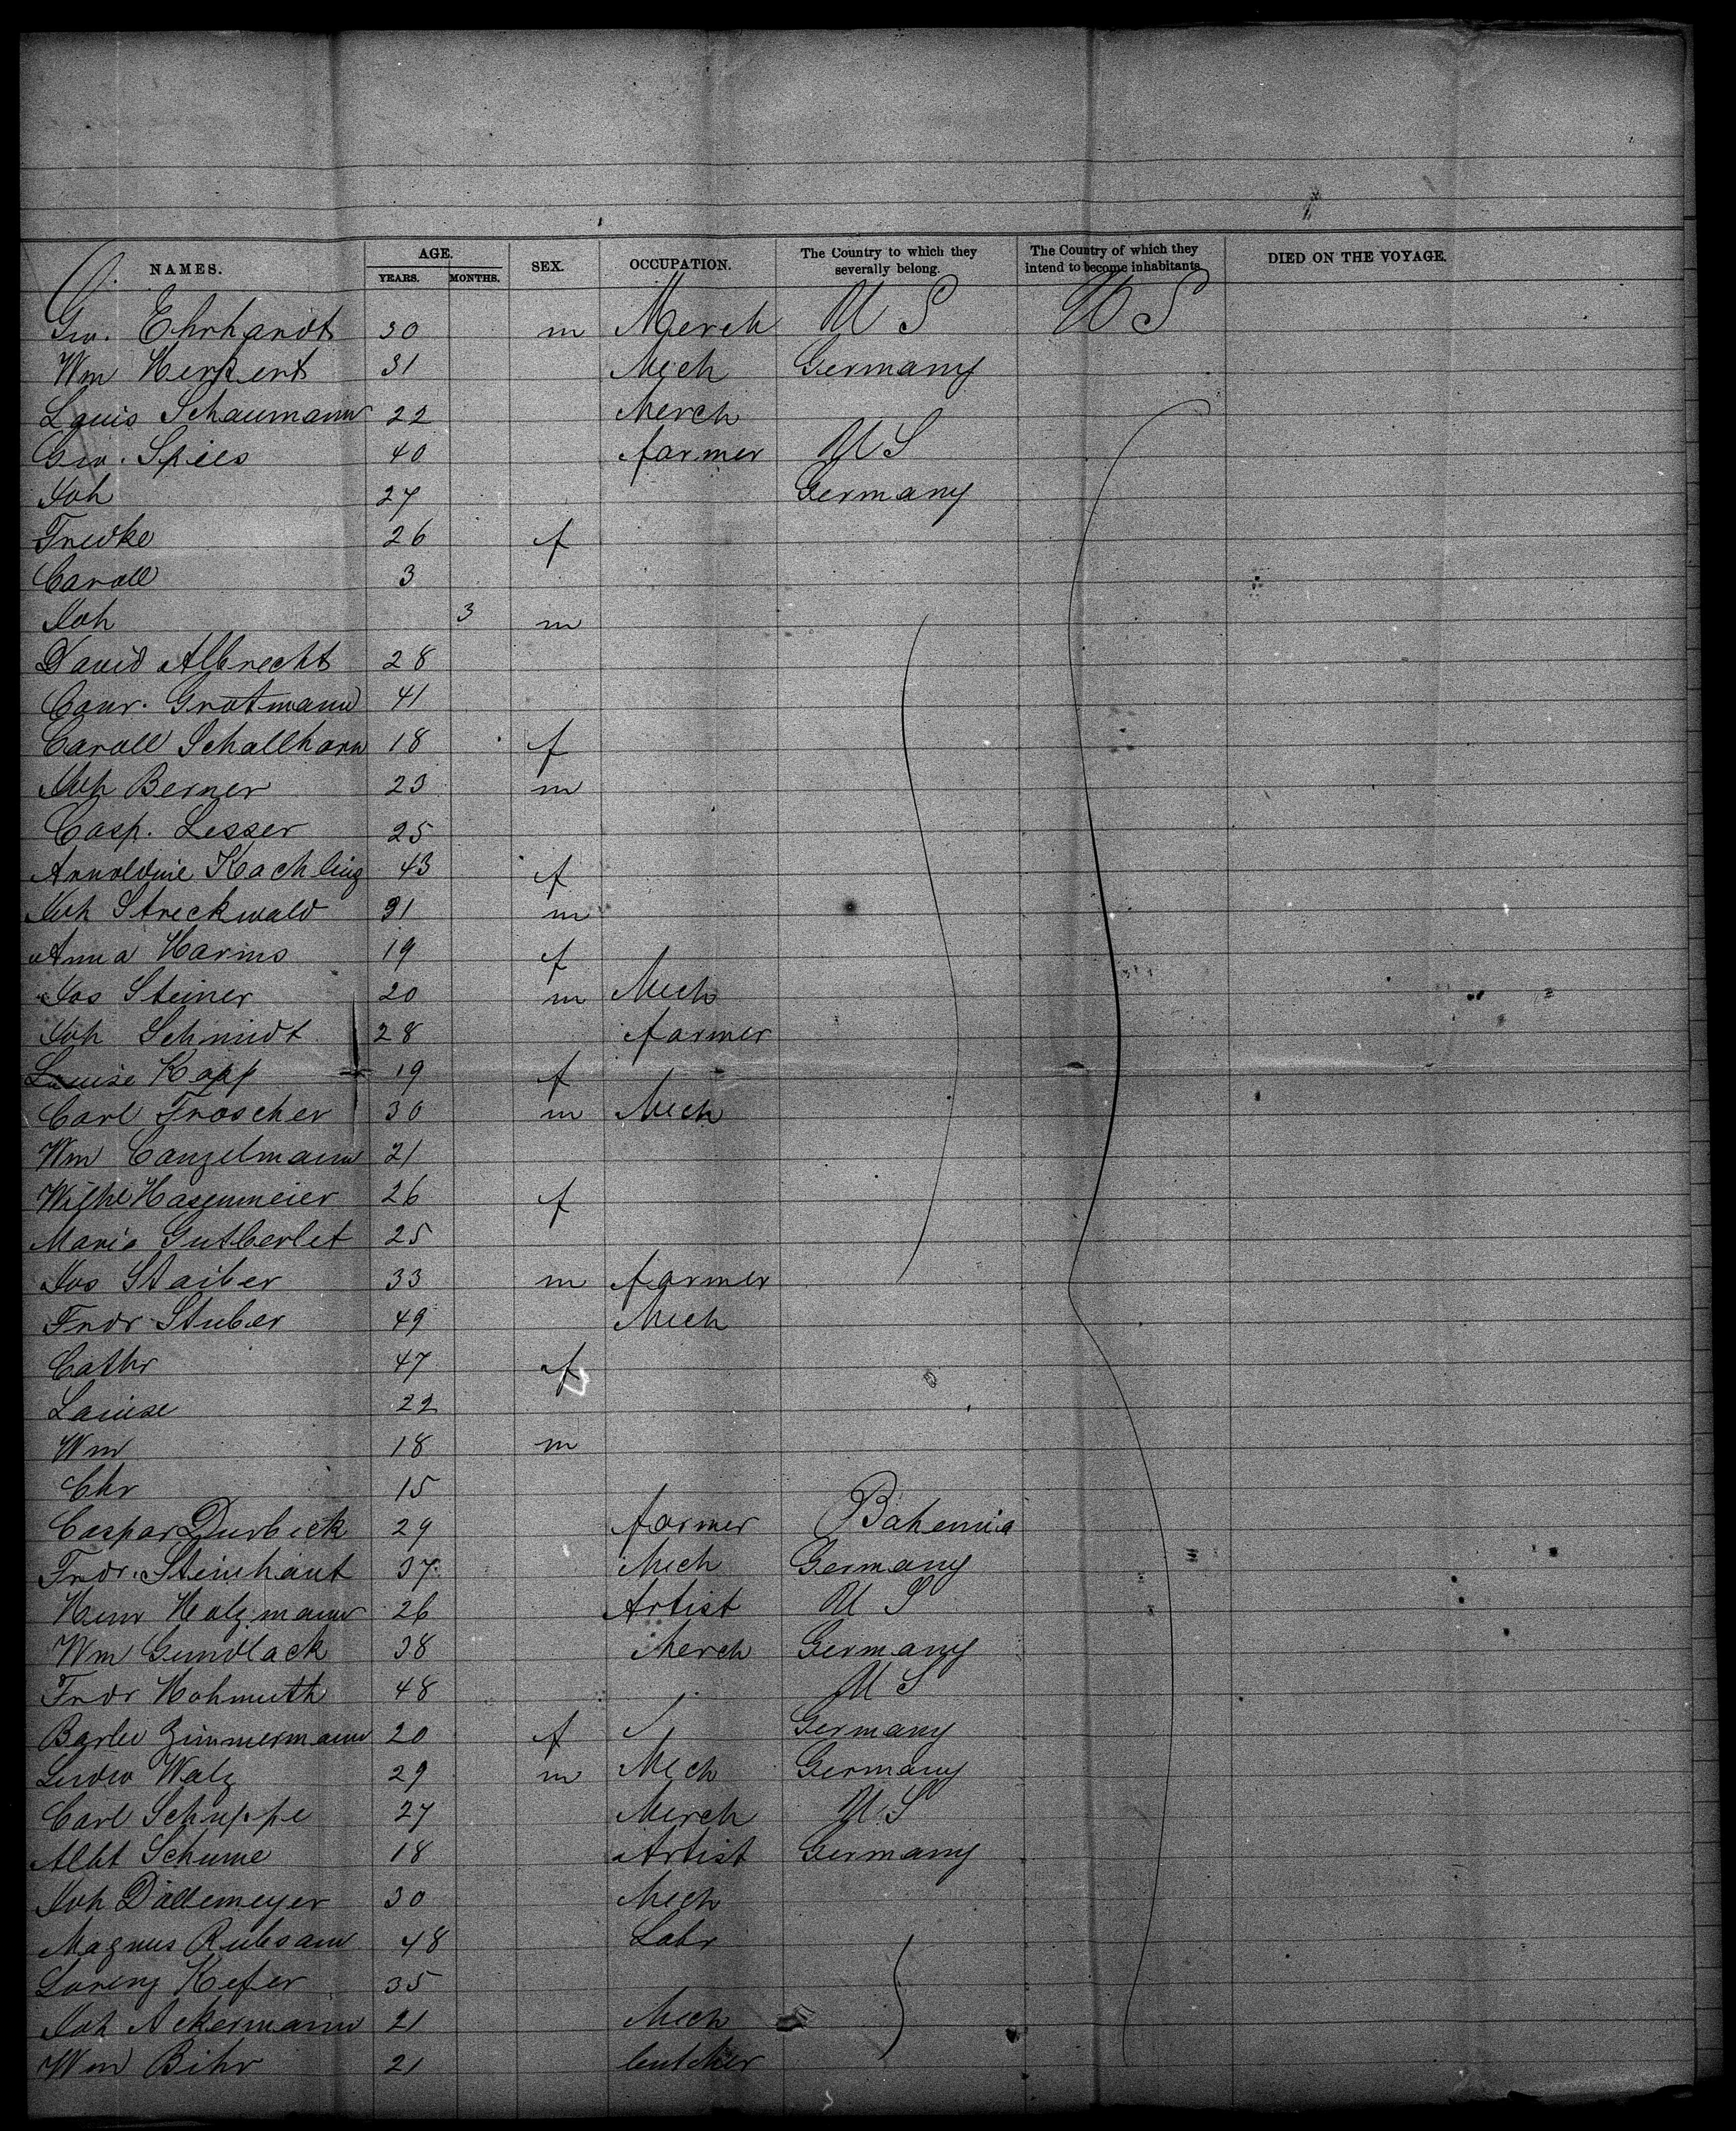 NAMES. AGE. YEARS. MONTHS. SEX. OCCUPATION. The Country to which they severally belong. The Country of which they intend to become inhabitants. DIED ON THE VOYAGE.
Geo. Ehrhardt 30 m Merch U S U S
Wm Herkert 31 Mech Germany
Louis Schaumann 22 Merch
Geo. Spies 40 farmer U S
Joh 27 Germany
Fredke 26 f
Caroll 3
Joh 3 m
David Albrecht 28
Conr. Grotmann 41
Caroll Schallhorn 18 f
Joh Berner 23 m
Casp. Lesser 25
Arnoldine Kachling 43 f
Joh Streckwald 31 m
Anna Harms 19 f
Jos Steiner 20 m Mech
Joh Schmidt 28 farmer
Louise Kopp 19 f
Carl Froscher 30 m Mech
Wm Canzelmann 21
Wilhe Hagenmeier 26 f
Maria Gutberlet 25
Jos Staiber 33 m farmer
Fridr Stuber 49 Mech
Cathr 47 f
Louise 22
Wm 18 m
Chr 15
Caspar Durbeck 29 farmer Bohemia
Fridr. Steinhaut 37 Mech Germany
Henr Holzmann 26 Artist U S
Wm Gundlack 38 Merch Germany
Fridr Hohmuth 48 U S
Zimmermann 20 f Germany
Ludw Walz 29 m Mech Germany
Carl Schuppe 27 Merch U S
Albt Schume 18 Artist Germany
Joh Dallemeyer 30 Mech
Magnus Rubsam 48 Labr
Lorenz Kefer 35
Joh Ackermann 21 Mech
Wm Bihr 21 butcher